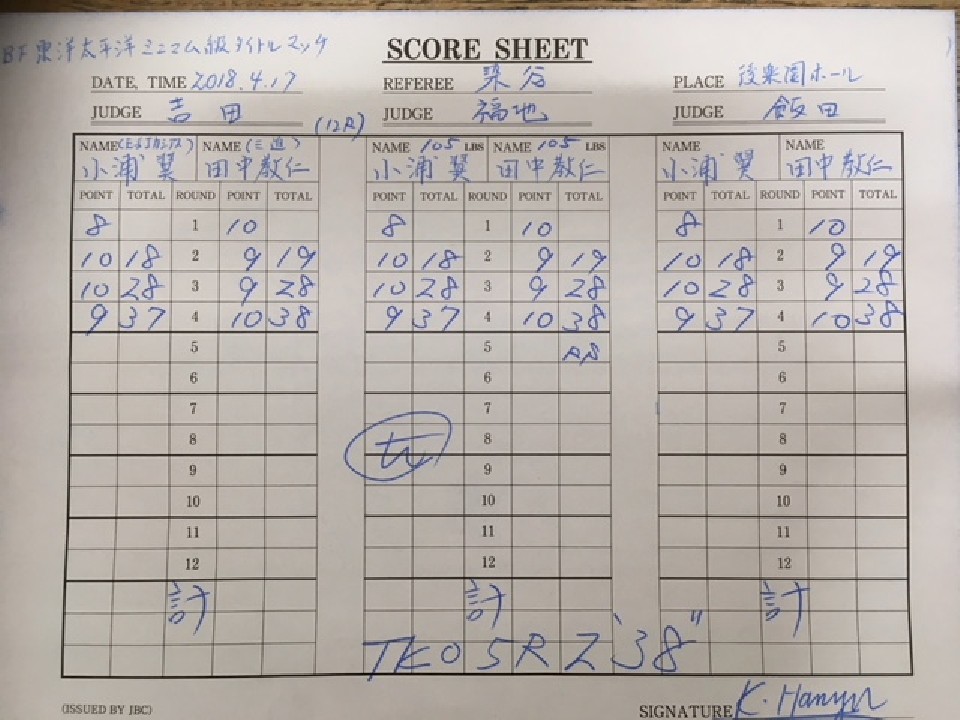 BF 東洋太平洋ミニマム級タイトルマッチ
SCORE SHEET
DATE, TIME 2018.4.17 REFEREE 染谷 PLACE 後楽園ホール
JUDGE 吉田 JUDGE 福地 JUDGE 飯田
(12R)
NAME NAME (三迫) NAME 105 LBS NAME 105 LBS NAME NAME
小浦翼 田中教仁 小浦翼 田中教仁 小浦翼 田中教仁
POINT TOTAL ROUND POINT TOTAL POINT TOTAL ROUND POINT TOTAL POINT TOTAL ROUND POINT TOTAL
8 1 10 8 1 10 8 1 10
10 18 2 9 19 10 18 2 9 19 10 18 2 9 19
10 28 3 9 28 10 28 3 9 28 10 28 3 9 28
9 37 4 10 38 9 37 4 10 38 9 37 4 10 38
5 5 5
6 6 6
7 7 7
8 8 8
9 9 9
10 10 10
11 11 11
12 12 12
計 計 計
TKO 5R 2'38"
(ISSUED BY JBC) SIGNATURE